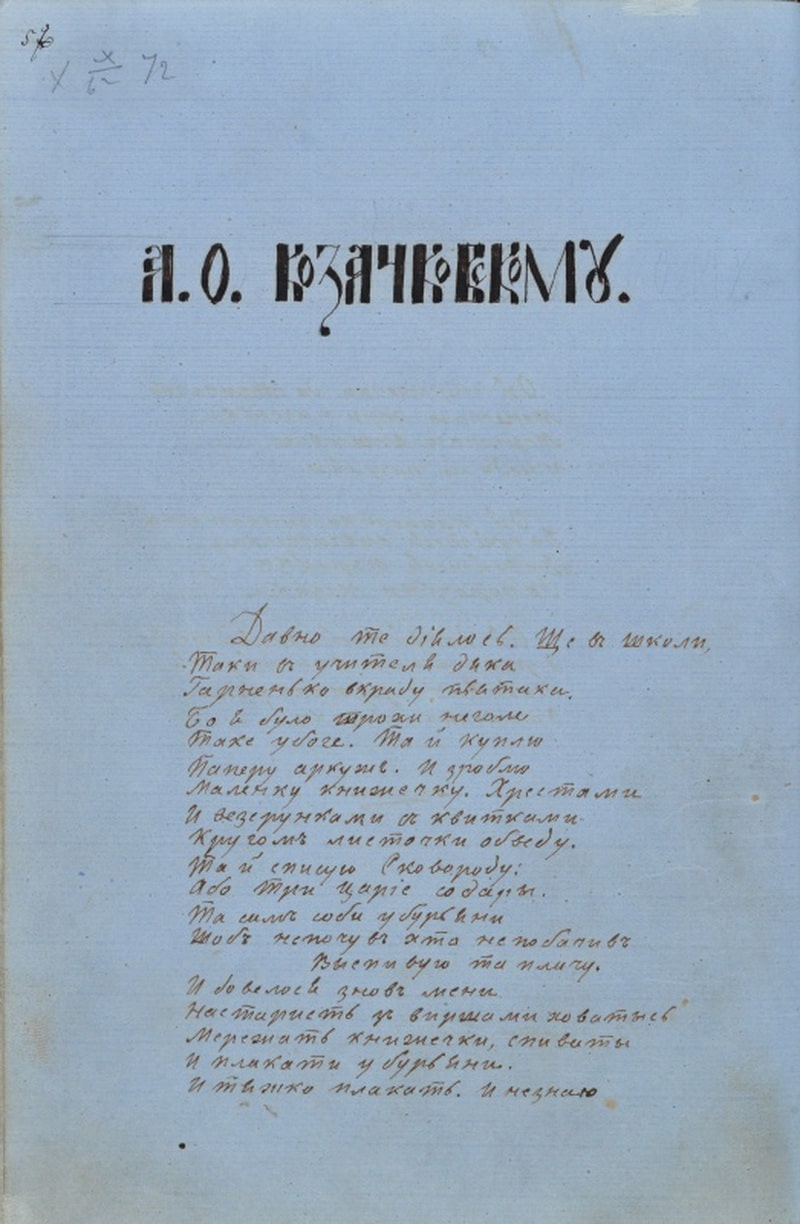 57
X X/6 72
А. О. КОЗАЧКОВСКОМУ.
Давно те діялось. Ще въ школи,
Таки въ учителя дяка
Гарненько вкраду пьятака.
Бо я було трохи неголе
таке убоге. Та й куплю
Паперу аркушъ. И зроблю
Маленку книжечку. Хрестами
И везерунками съ квитками
Кругомъ листочки обведу.
Та й списую Сковороду:
Або три царіе со дары.
Та самъ соби у бурьяни
Щобъ непочувъ хто непобачивъ
Выспивую та плачу.
И довелося зновъ мени
На старисть зъ виршами ховатысь
Мережать книжечки, спивати
И плакати у бурьяни.
И тяжко плакать. И незнаю